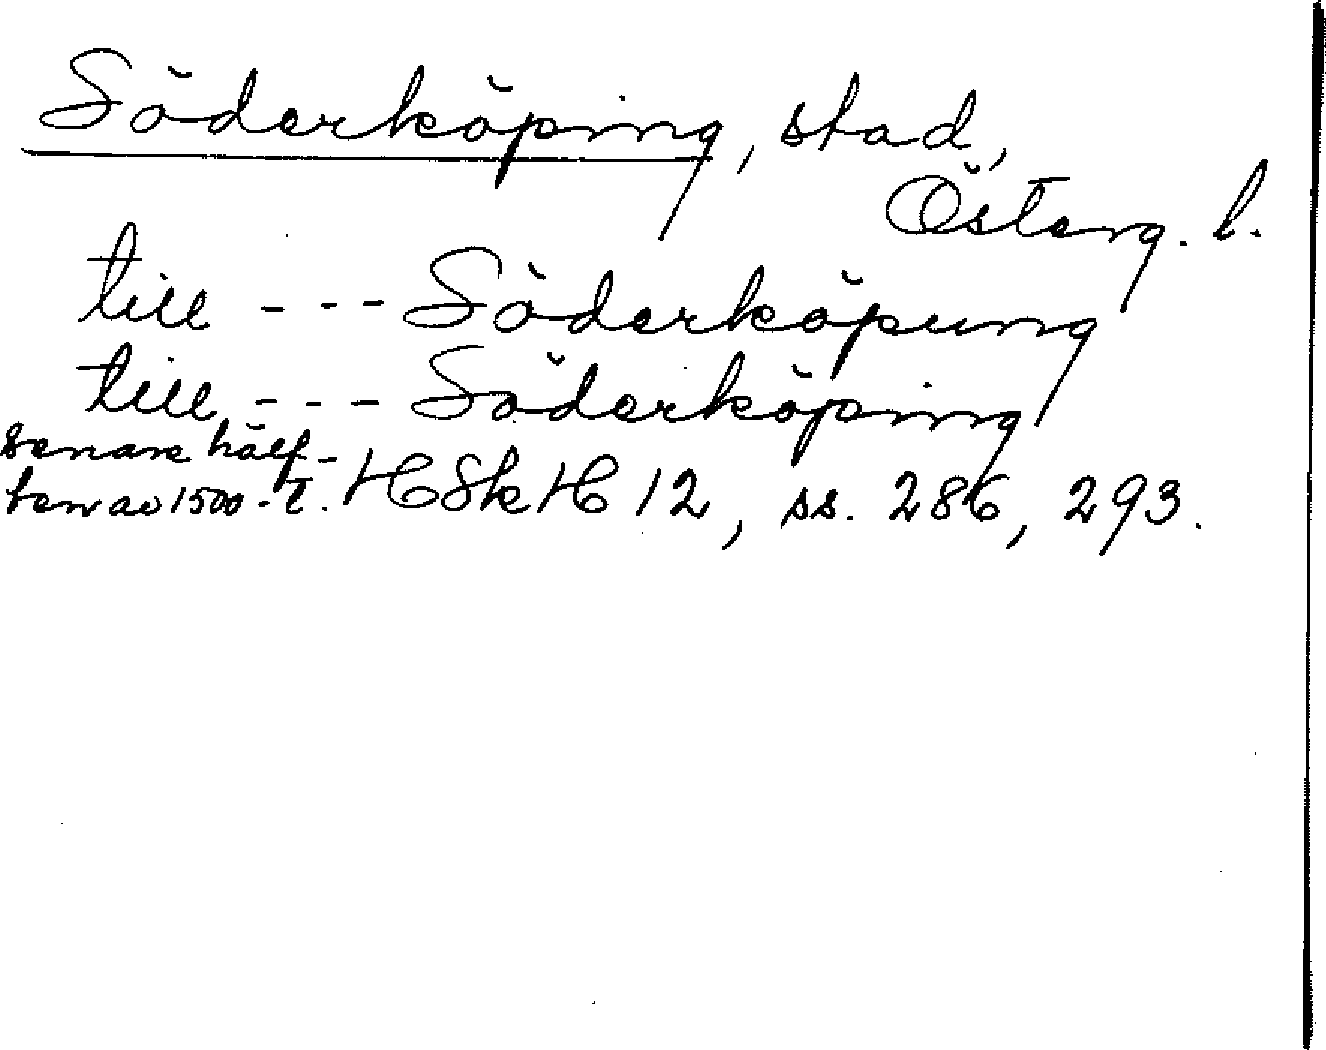 Söderköping, stad,
Österg. l.
till --- Söderköpung
till --- Söderköping
senare hälf-
ten av 1500-t. HSkH 12, ss. 286, 293.